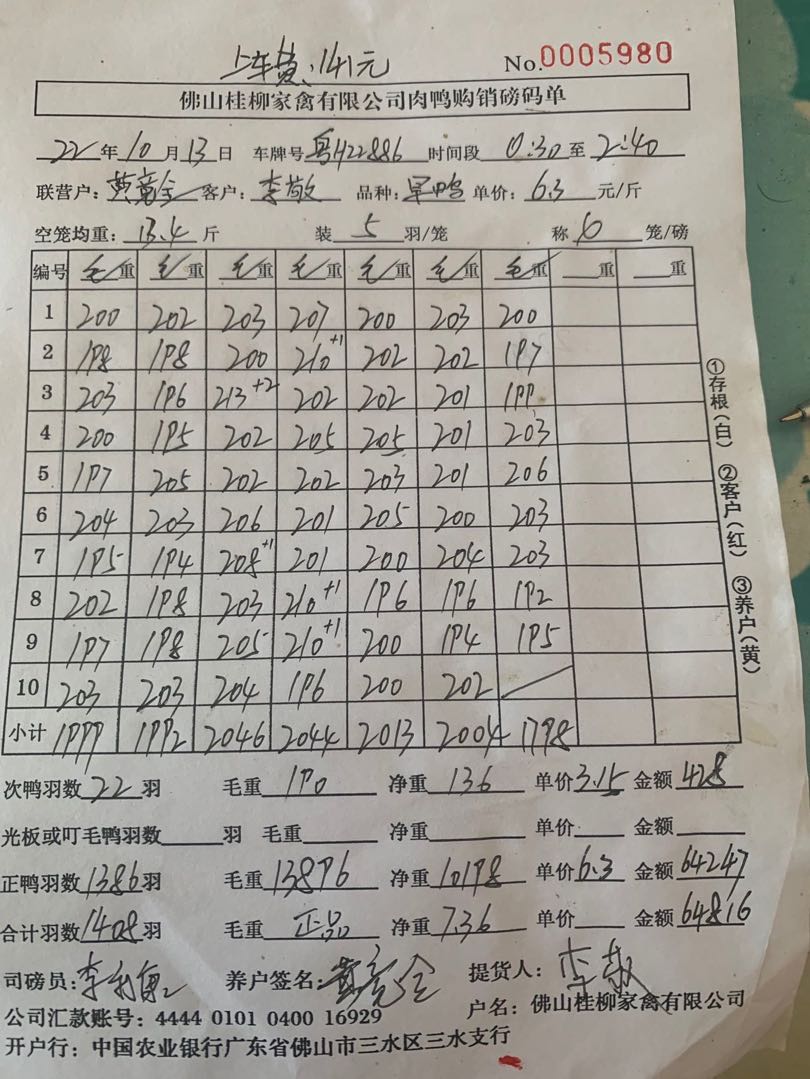 上车费:141元 No.0005980
佛山桂柳家禽有限公司肉鸭购销磅码单
22年10月13日 车牌号粤H22886 时间段0:30至2:40
联营户:黄竟全 客户:李敬 品种:旱鸭 单价:6.3元/斤
空笼均重:13.4斤 装5羽/笼 称6笼/磅
编号 毛重 毛重 毛重 毛重 毛重 毛重 毛重 重 重
1 200 202 203 207 200 203 200
2 198 198 200 210+1 202 202 197
3 203 196 213+2 202 202 201 199
4 200 195 202 205 205 201 203
5 197 205 202 202 203 201 206
6 204 203 206 201 205 200 203
7 195 194 208+1 201 200 204 203
8 202 198 203 210+1 196 196 192
9 197 198 205 210+1 200 194 195
10 203 203 204 196 200 202
小计 1999 1992 2046 2044 2013 2004 1798
次鸭羽数22羽 毛重190 净重136 单价3.15 金额428
光板或叮毛鸭羽数 羽 毛重 净重 单价 金额
正鸭羽数1386羽 毛重13896 净重10198 单价6.3 金额64247
合计羽数1408羽 毛重正品 净重7.36 单价 金额64816
司磅员:李 养户签名:黄竟全 提货人:李敬
公司汇款账号:4444 0101 0400 16929 户名:佛山桂柳家禽有限公司
开户行:中国农业银行广东省佛山市三水区三水支行
①存根(白) ②客户(红) ③养户(黄)